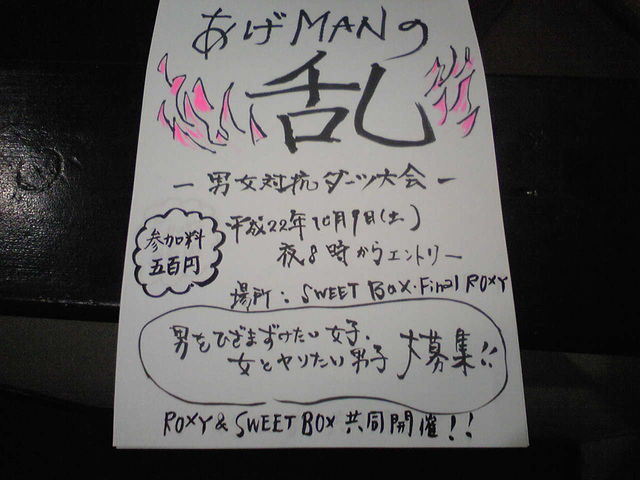 あげMANの
乱
ー男女対抗ダーツ大会ー
参加料
五百円
平成22年10月9日(土)
夜8時からエントリー
場所:SWEET BOX・Final ROXY
男をひざまずけたい女子、
女とヤリたい男子 大募集!!
ROXY & SWEET BOX 共同開催!!